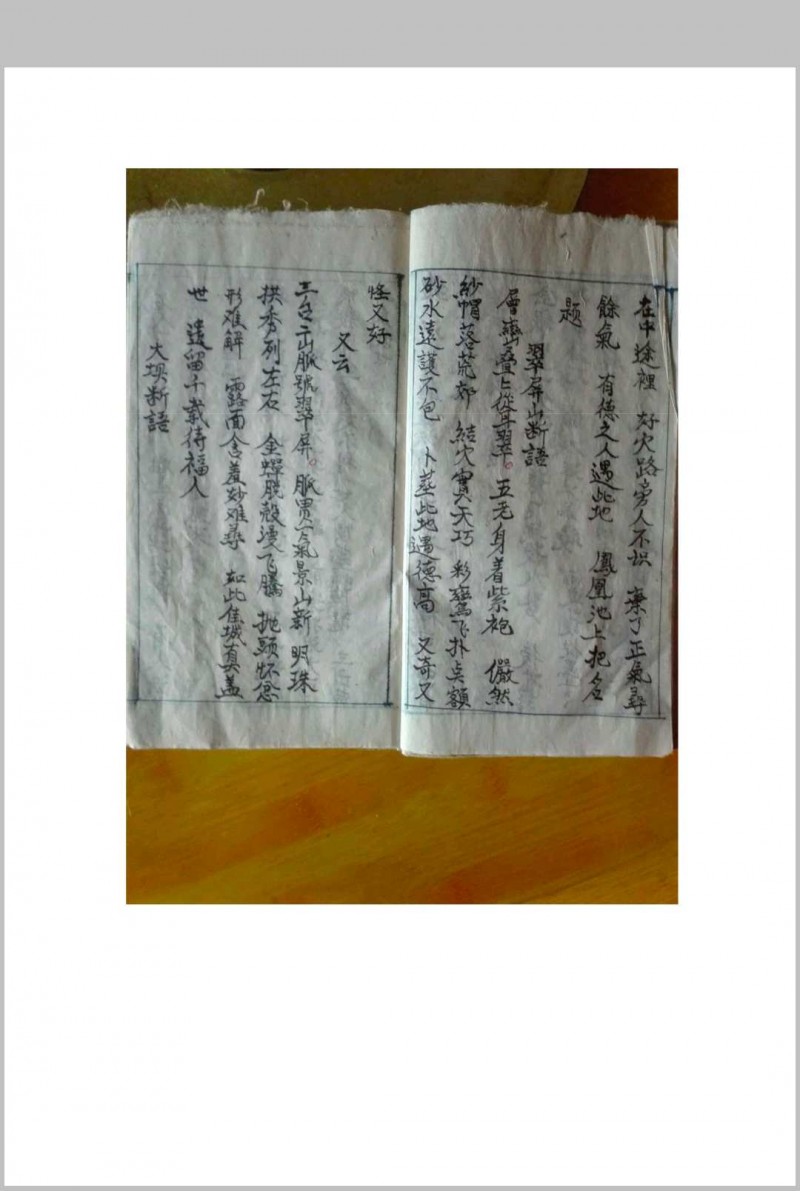 在中途裡 好穴路旁人不识 棄了正氣尋
餘氣 有德之人遇此地 鳳凰池上把名
题
翠屏山断語
層巒叠上聳翠。五无身着紫袍 儼然
紗帽落荒郊 結穴實天巧 彩鸞飞扑点額
砂水遠護不包 卜塟此地遇德高 又奇又
怪又好
又云
三台山脈號翠屏。脈貫氣景山新 明珠
拱秀列左右 金蟬脱殼漫飞騰 抛頭怀
形难解 露面含羞妙难尋 如此佳城真盖
世 遺留千載待福人
大坝断語